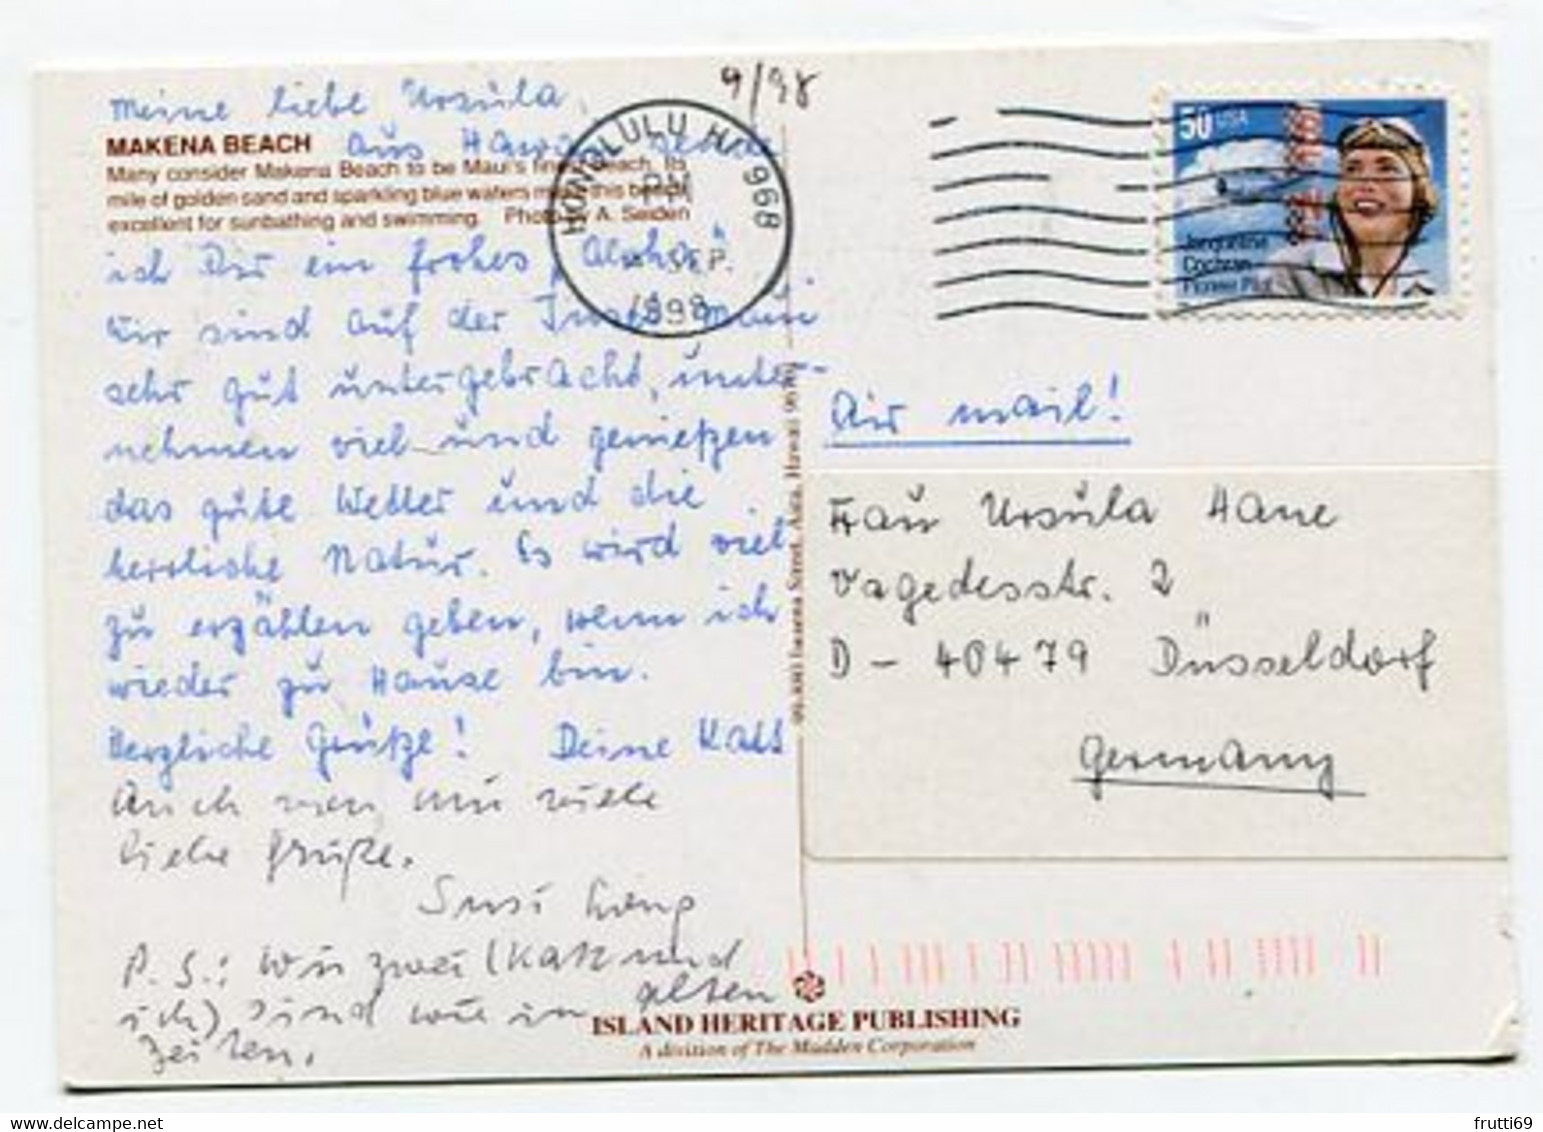 9/98
Meine liebe Ursula,
MAKENA BEACH
aus Hawaii
Many consider Makena Beach to be Maui's finest beach. Its
mile of golden sand and sparkling blue waters make this beach
excellent for sunbathing and swimming. Photo: A. Seiden
ich Dir ein frohes „Aloha"
Wir sind auf der Insel Maui
sehr gut untergebracht, unter-
nehmen viel und genießen
das gute Wetter und die
herrliche Natur. Es wird viel
zu erzählen geben, wenn ich
wieder zu Hause bin.
Herzliche Grüße! Deine Kati
Auch von mir viele
liebe Grüße.
Susi
P.S.: Wir zwei (Kati und
ich) sind wie in alten
Zeiten.
HONOLULU HI 968
PM
SEP.
1998
50 USA
Jacqueline
Cochran
Pioneer Pilot
Air mail!
Frau Ursula Hane
Vagedesstr. 2
D - 40479 Düsseldorf
Germany
99-880 Iwaena Street, Aiea, Hawaii 96701
ISLAND HERITAGE PUBLISHING
A division of The Madden Corporation
frutti69